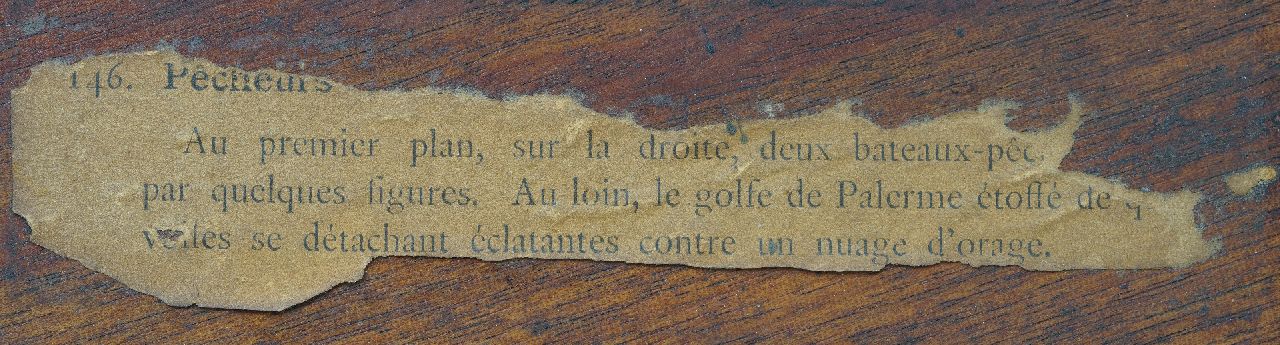 146. Pêcheurs
Au premier plan, sur la droite, deux bateaux-pêc
par quelques figures. Au loin, le golfe de Palerme étoffé de q
voiles se détachant éclatantes contre un nuage d'orage.